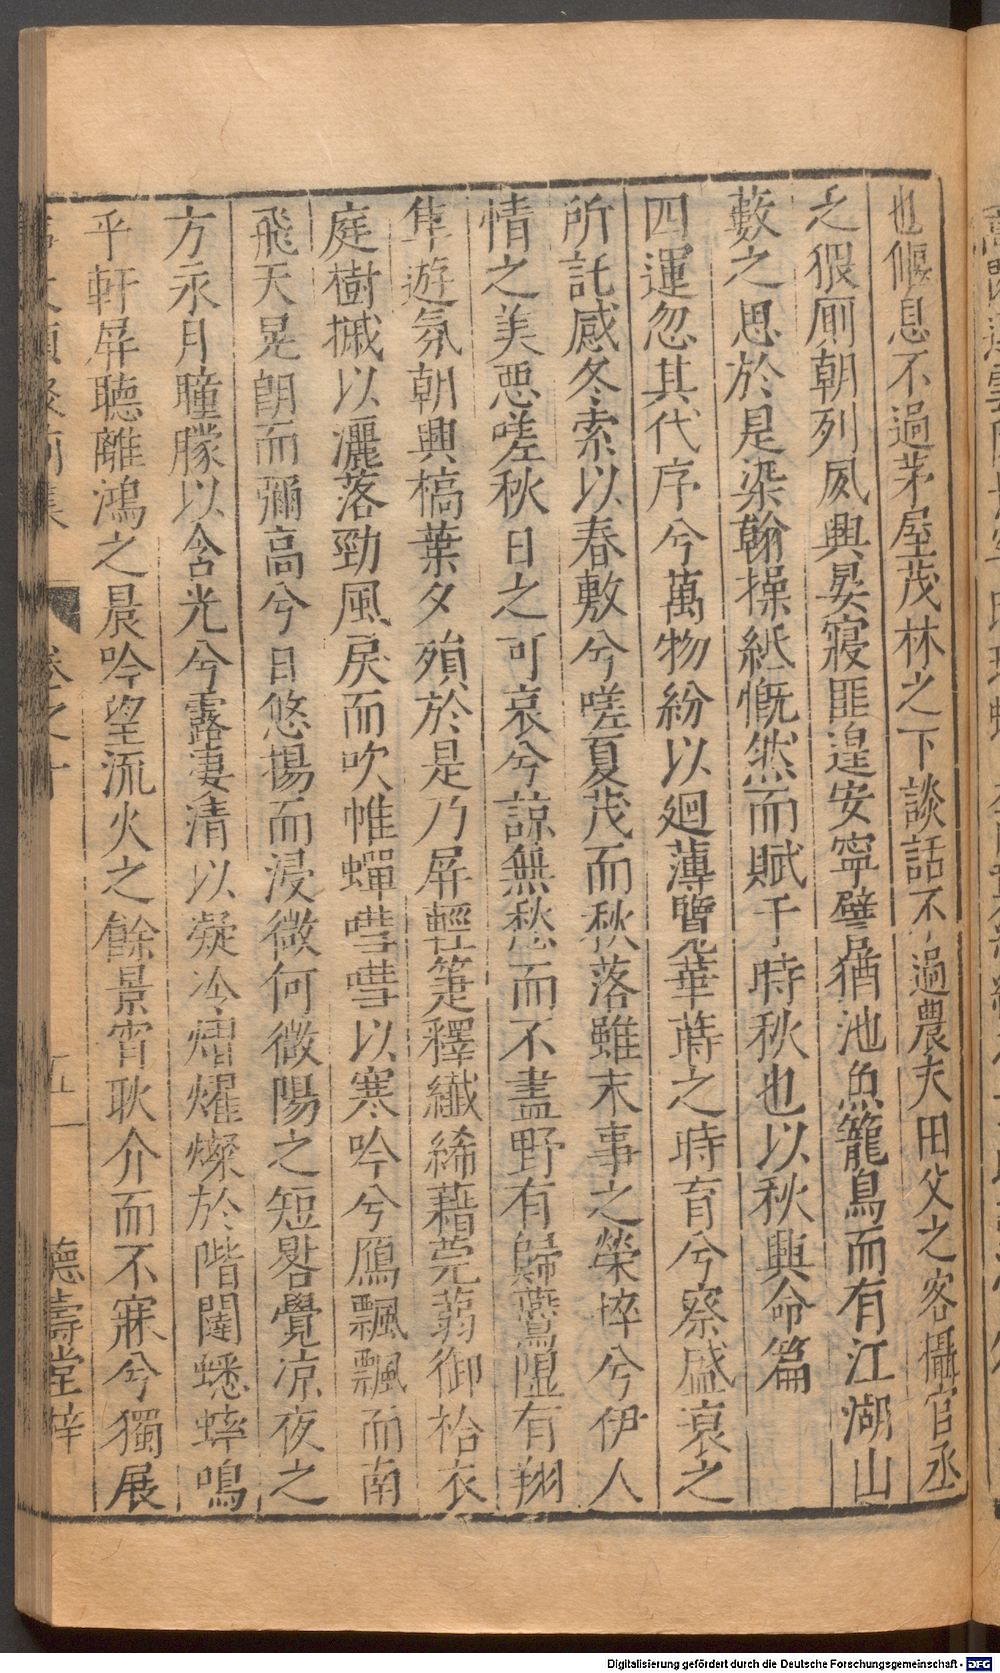 也偃息不過茅屋茂林之下談話不過農夫田父之客攝官丞
之猥厠朝列夙興晏寢匪遑安寧譬猶池魚籠鳥而有江湖山
藪之思於是染翰操紙慨然而賦于時秋也以秋興命篇
四運忽其代序兮萬物紛以廻薄覽華蒔之時育兮察盛衰之
所託感冬索以春敷兮嗟夏茂而秋落雖末事之榮悴兮伊人
情之美惡嗟秋日之可哀兮諒無愁而不盡野有歸鷰隰有翔
隼遊氛朝興槁葉夕殞於是乃屏輕箑釋纖絺藉莞蒻御袷衣
庭樹摵以灑落勁風戾而吹帷蟬嘒嘒以寒吟兮鴈飄飄而南
飛天晃朗而彌高兮日悠揚而浸微何微陽之短晷覺凉夜之
方永月朣朦以含光兮露凄清以凝冷熠燿燦於階闥蟋蟀鳴
乎軒屏聽離鴻之晨吟望流火之餘景宵耿介而不寐兮獨展
事文類聚前集 卷之十 五 德壽堂梓
Digitalisierung gefördert durch die Deutsche Forschungsgemeinschaft - DFG